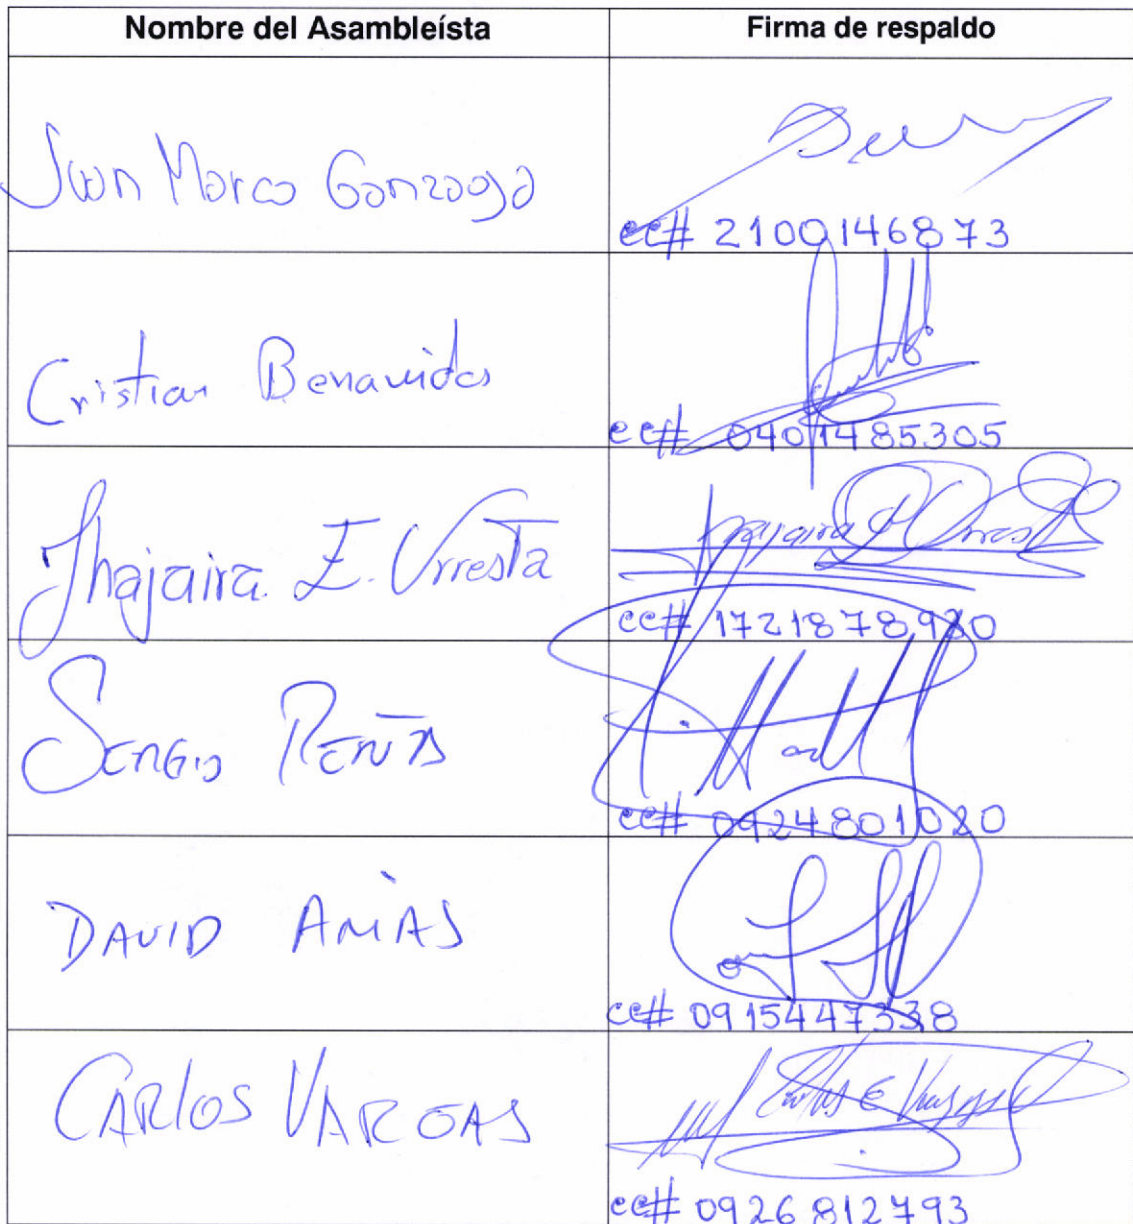 Nombre del Asambleísta Firma de respaldo
Juan Marco Gonzaga
cc# 2100146873
Cristian Benavides
cc# 0401485305
Jhajaira E. Urresta
cc# 1721878920
Sergio Peña
cc# 0924801020
DAVID ARIAS
cc# 0915447338
CARlos VARGAS
Carlos E Vargas
cc# 0926812793